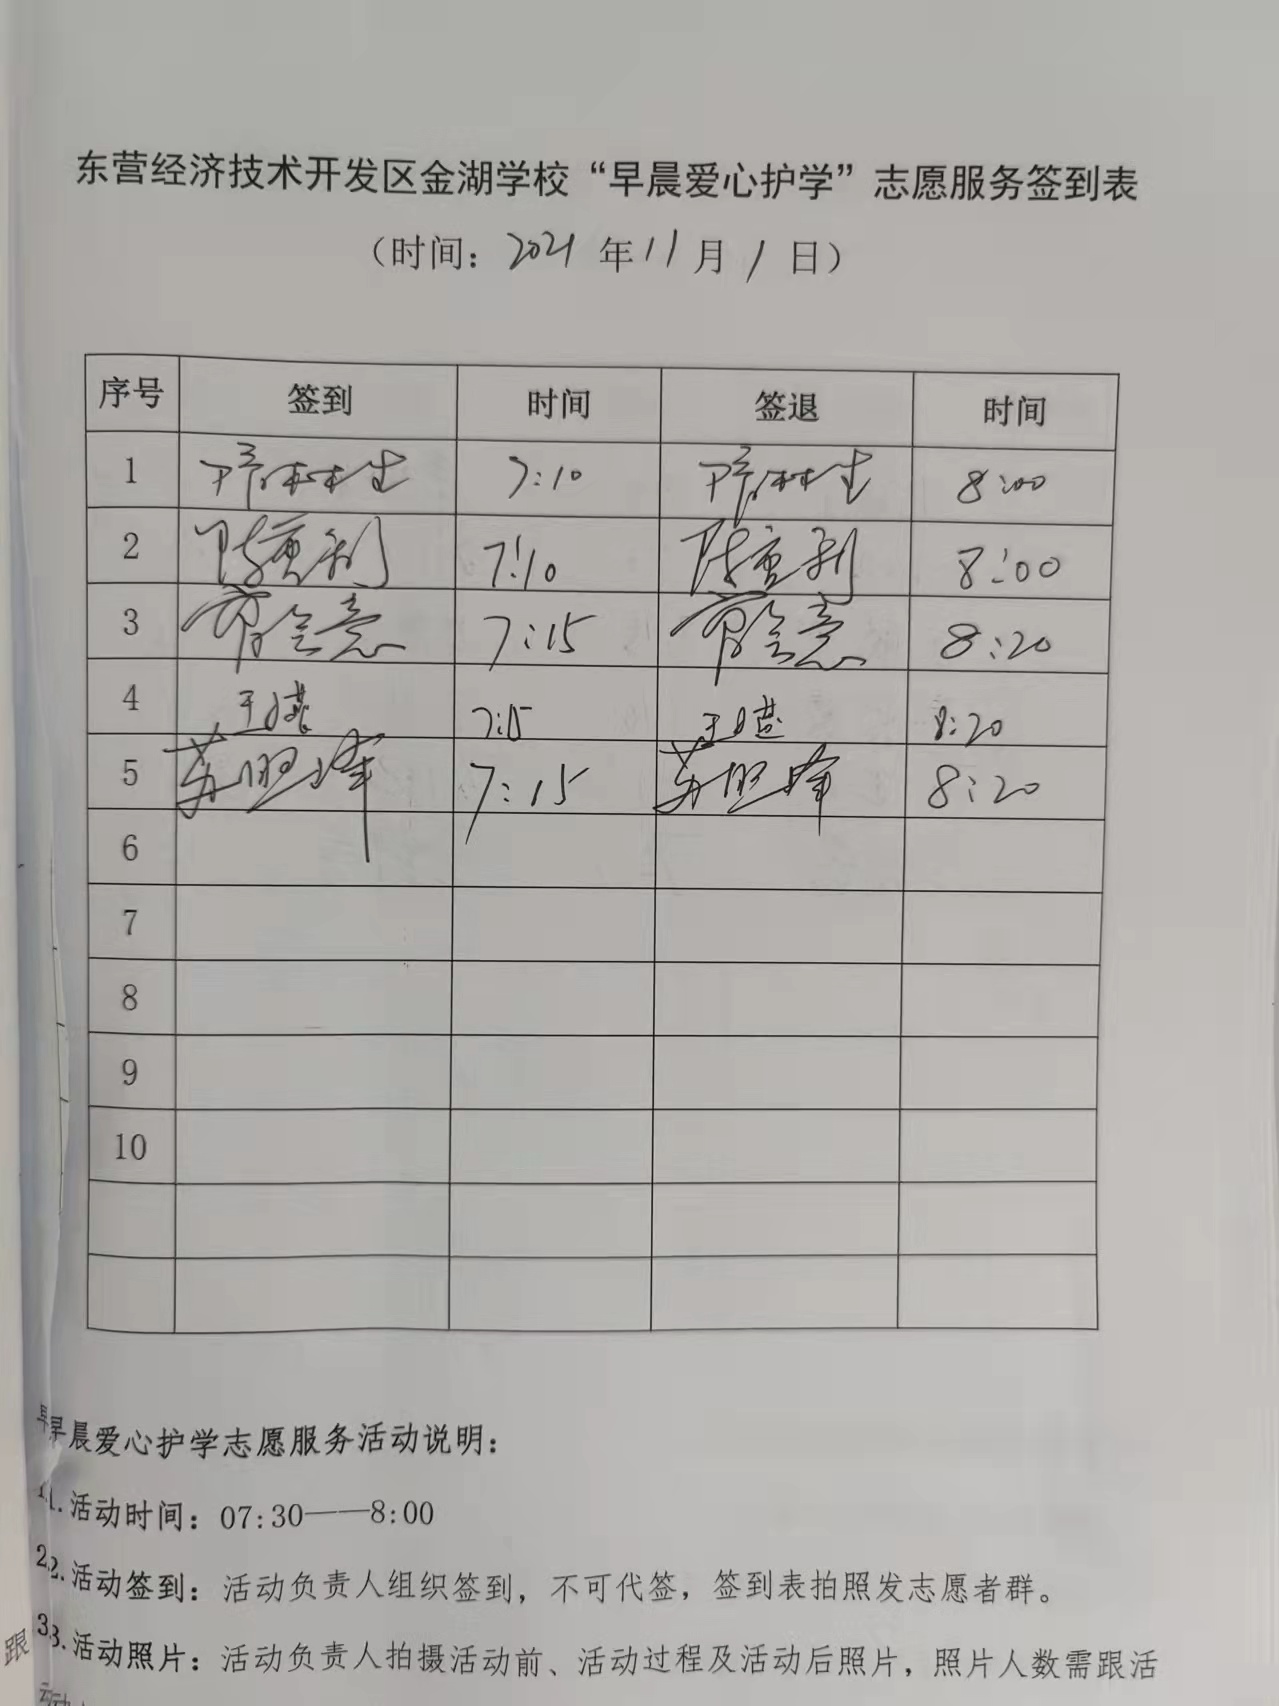 东营经济技术开发区金湖学校“早晨爱心护学”志愿服务签到表
（时间：2021 年 11 月 1 日）
序号 签到 时间 签退 时间
1 7:10 8:00
2 陈重利 7:10 陈重利 8:00
3 曾会意 7:15 曾会意 8:20
4 7:15 8:20
5 苏照峰 7:15 苏照峰 8:20
6
7
8
9
10
早晨爱心护学志愿服务活动说明：
1. 活动时间：07:30——8:00
2. 活动签到：活动负责人组织签到，不可代签，签到表拍照发志愿者群。
3. 活动照片：活动负责人拍摄活动前、活动过程及活动后照片，照片人数需跟活
跟